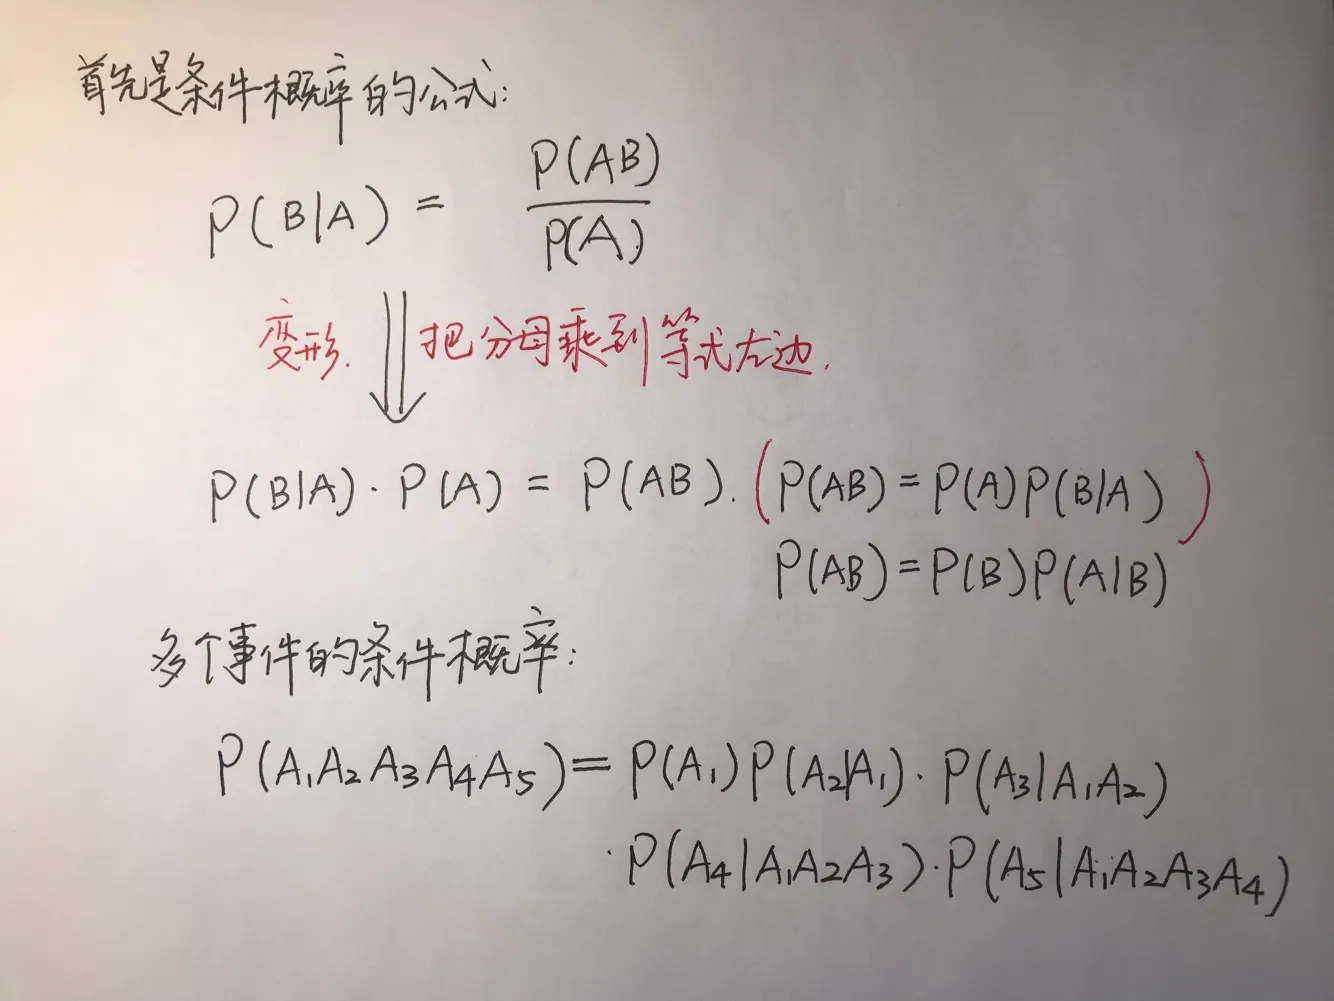 首先是条件概率的公式:
P(B|A) = P(AB)/P(A)
变形. 把分母乘到等式左边.
P(B|A)·P(A) = P(AB). (P(AB)=P(A)P(B|A))
P(AB)=P(B)P(A|B)
多个事件的条件概率:
P(A₁A₂A₃A₄A₅)=P(A₁)P(A₂|A₁)·P(A₃|A₁A₂)
·P(A₄|A₁A₂A₃)·P(A₅|A₁A₂A₃A₄)